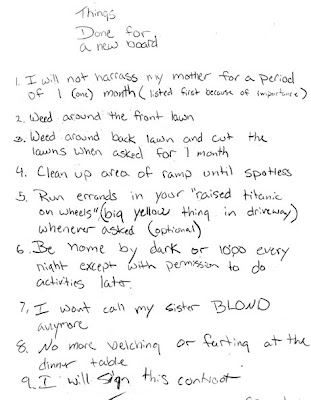 Things
Done for
a new board
1. I will not harrass my mother for a period
of 1 (one) month (listed first because of importance)
2. Weed around the front lawn
3. Weed around back lawn and cut the
lawns when asked for 1 month
4. Clean up area of ramp until spotless
5. Run errands in your "raised titanic
on wheels" (big yellow thing in driveway)
whenever asked (optional)
6. Be home by dark or 10:00 every
night except with permission to do
activities later.
7. I wont call my sister BLOND
anymore
8. No more belching or farting at the
dinner table
9. I will sign this contract